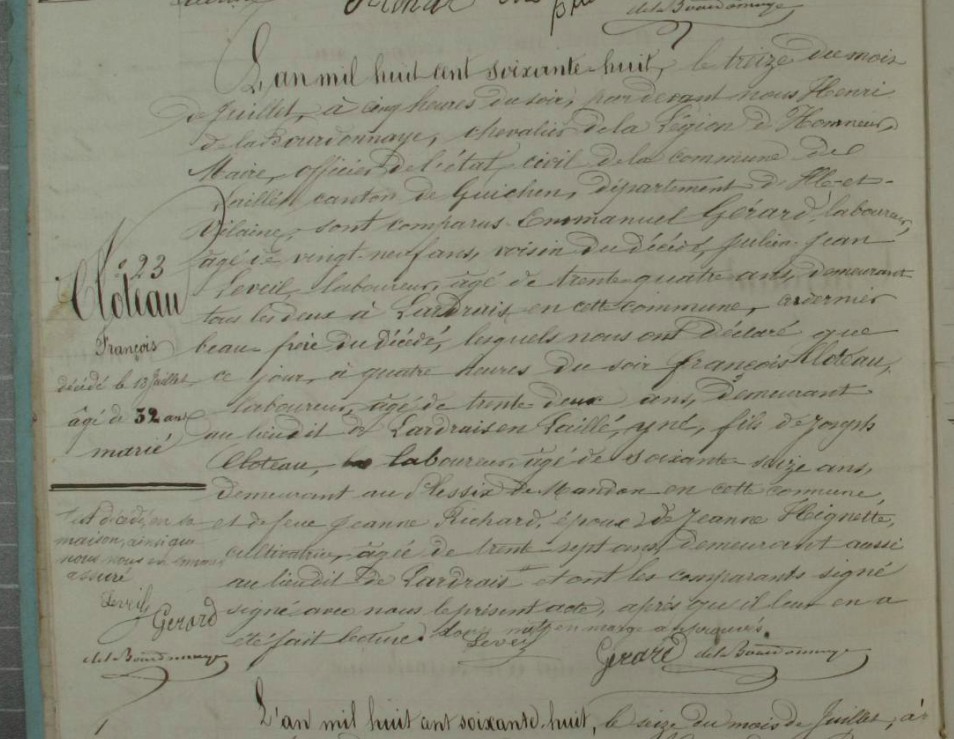 de la Bourdonnaye
L'an mil huit cent soixante-huit, le treize du mois
de Juillet, à cinq heures du soir, par devant nous Henri
de la Bourdonnaye, chevalier de la Légion d'Honneur,
Maire, officier de l'état civil de la commune de
Laillé, canton de Guichen, département d'Ille-et-
Vilaine, sont comparus Emmanuel Gérard, laboureur,
âgé de vingt-neuf ans, voisin du décédé, Julien Jean
Leveil, laboureur, âgé de trente-quatre ans, demeurant
tous les deux à Lardrais en cette commune, ce dernier
beau-frère du décédé, lesquels nous ont déclaré que
ce jour, à quatre heures du soir françois Cloteau,
laboureur, âgé de trente deux ans, demeurant
au lieudit de Lardrais en Laillé, y né, fils de Joseph
Cloteau, laboureur, âgé de soixante-seize ans,
demeurant au Plessix de Mandon en cette commune,
et de feue Jeanne Richard, époux de Jeanne Hignette,
cultivatrice, âgée de trente-sept ans, demeurant aussi
au lieudit de Lardrais + et ont les comparants signé
signé avec nous le présent acte, après que il leur en a
été fait lecture. en marge approuvés.
Leveil Gérard de la Bourdonnaye
N° 23
Cloteau
François
décédé le 13 Juillet
âgé de 32 ans
marié
+ est décédé en sa
maison, ainsi que
nous nous en sommes
assuré
Leveil
Gerard
de la Bourdonnaye
L'an mil huit cent soixante-huit, le seize du mois de Juillet, à